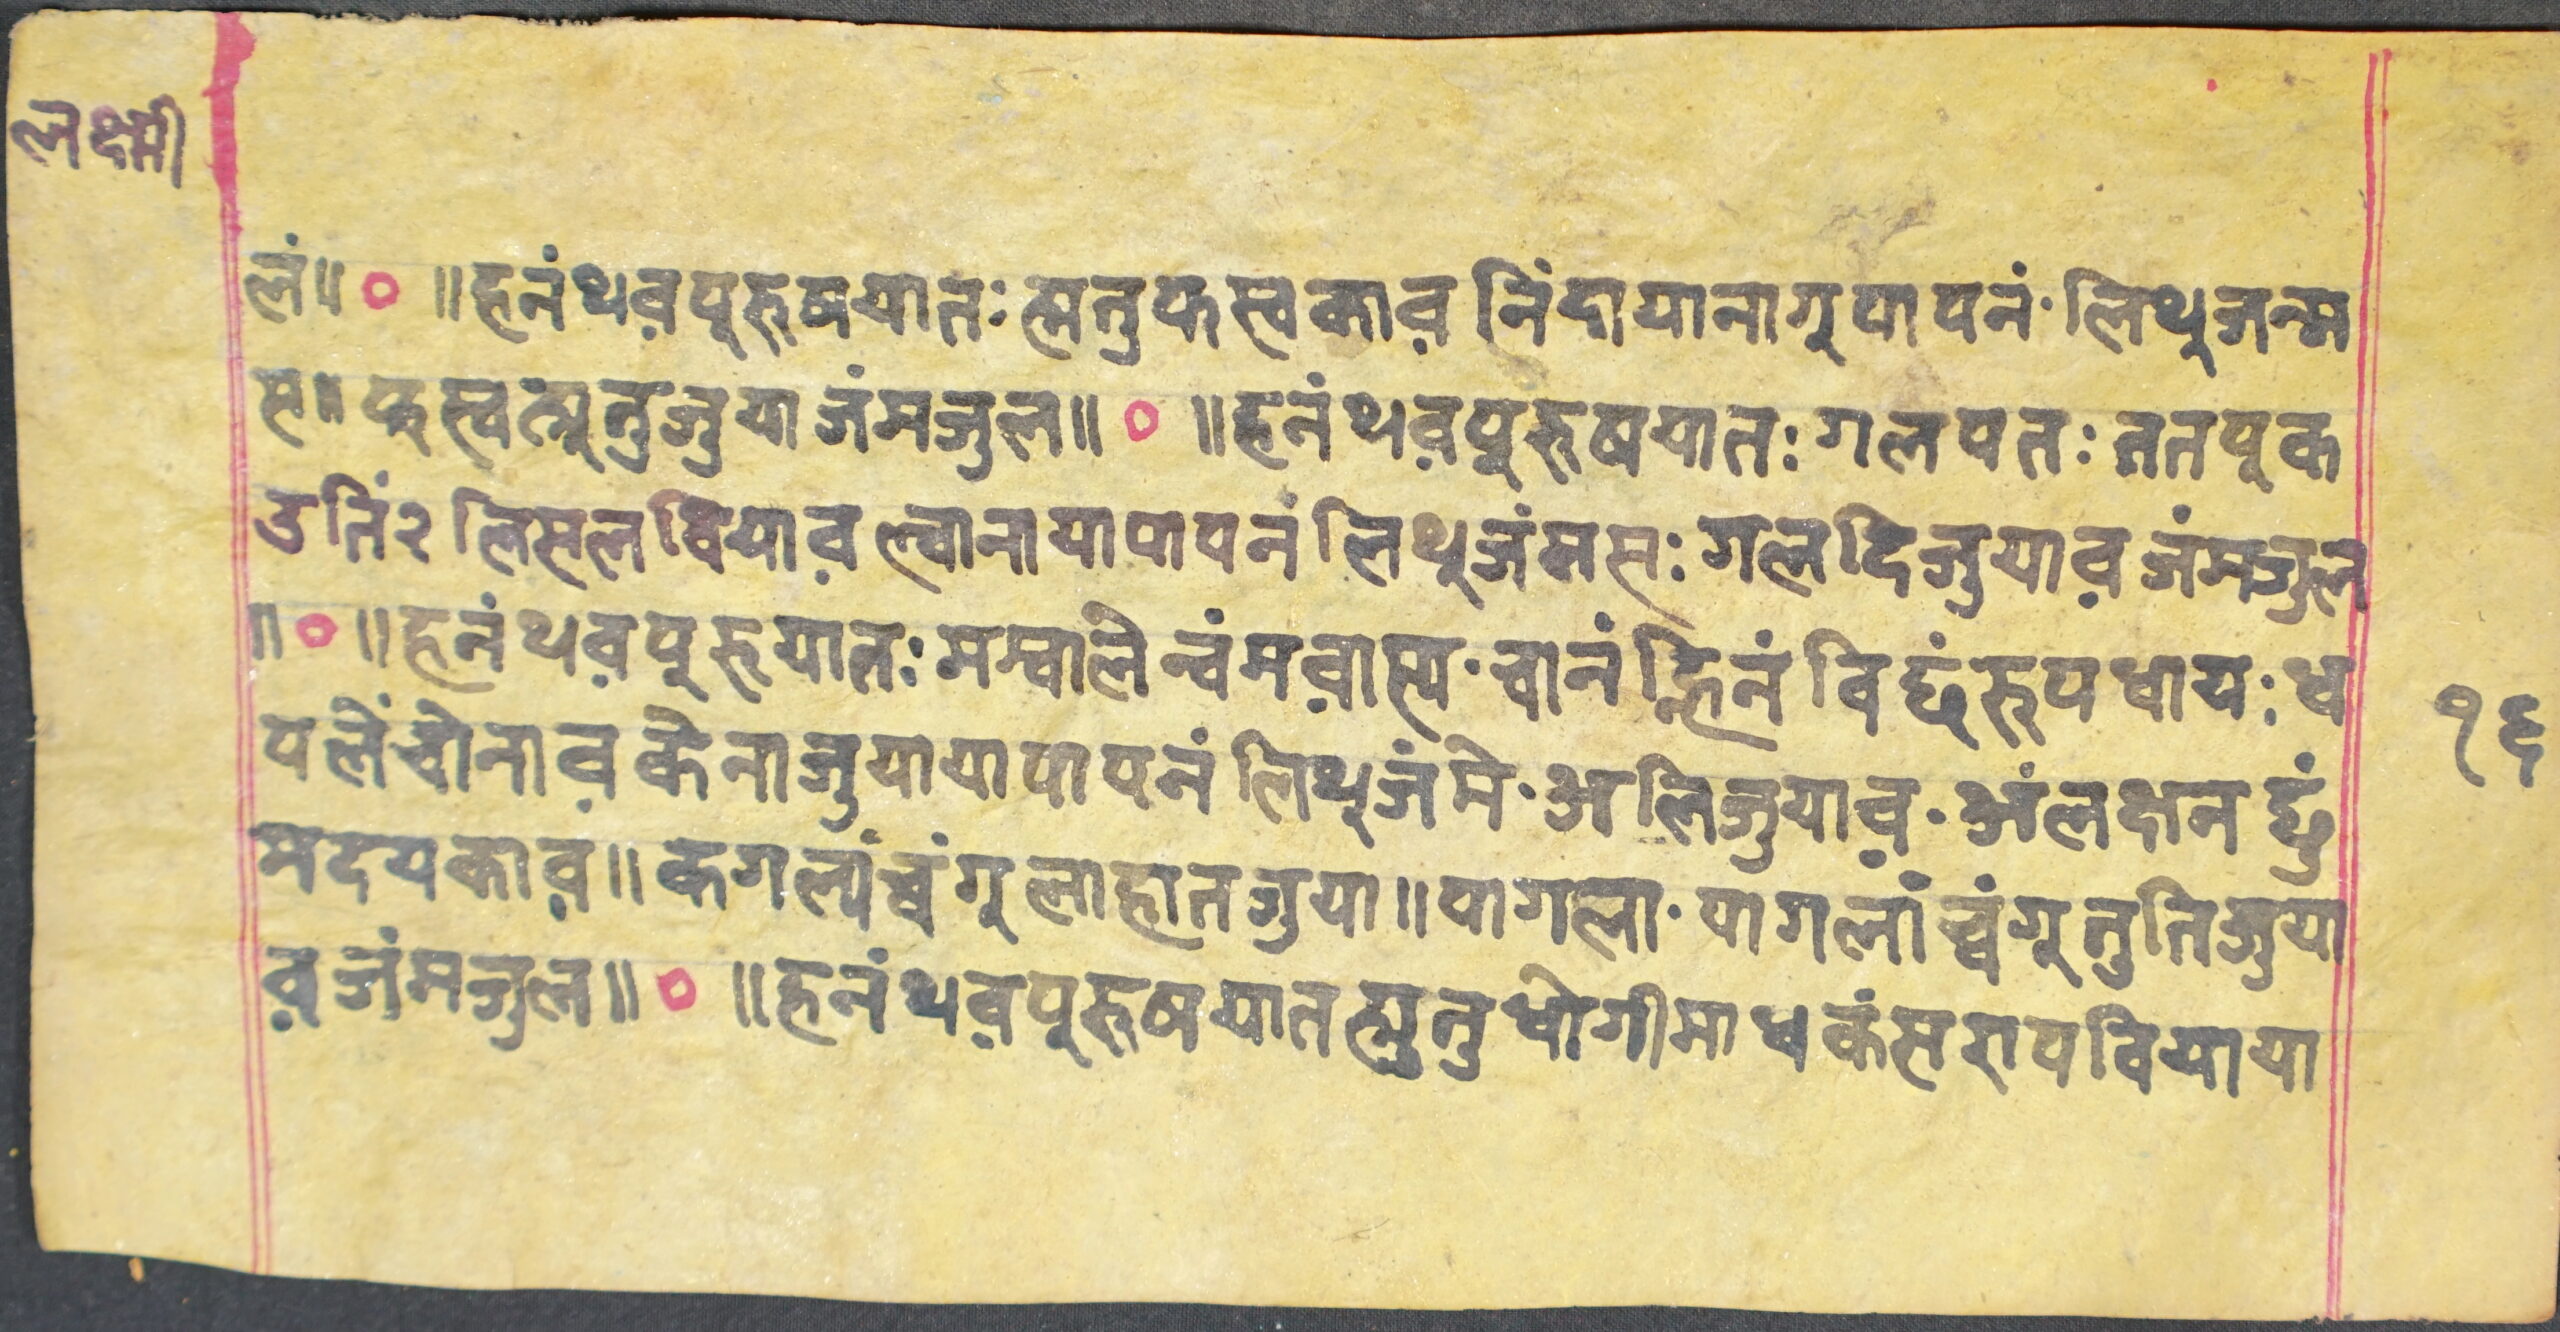 लक्ष्मी
लं॥ ० ॥हनंथव़पूरुषयातः मतुफस्वकाव़ निंदायानागूपापनं· लिथूजन्म
स॥ फुस्वम्यूतुजुयाजंमजुल॥ ० ॥हनंथव़पूरुषयातः गलपतः ततपूक
उतिं२ लिसलवियाव़ ल्वानायापापनं लिथूजंमसः गलदिजुयाव़ जंमजुल
॥ ० ॥हनंथव़पूरुयातः मम्वालेन्वंमव़ास्य· चानंह्निनं विद्यूंरुपधायः ध
पलेंचोनाव़ केनाजुयायापापनं लिथूजंमे· अलिजुयाव़· अंलक्षनद्युं
मदयकाव़॥ कगल्यंच्वंगूलाहातजुया॥ पागला· पागलांच्वंगूतुतिजुया
व़जंमजुल॥ ० ॥हनंथव़पूरुषयातह्मुतुधोगीमाधकंसरापवियाया
१६